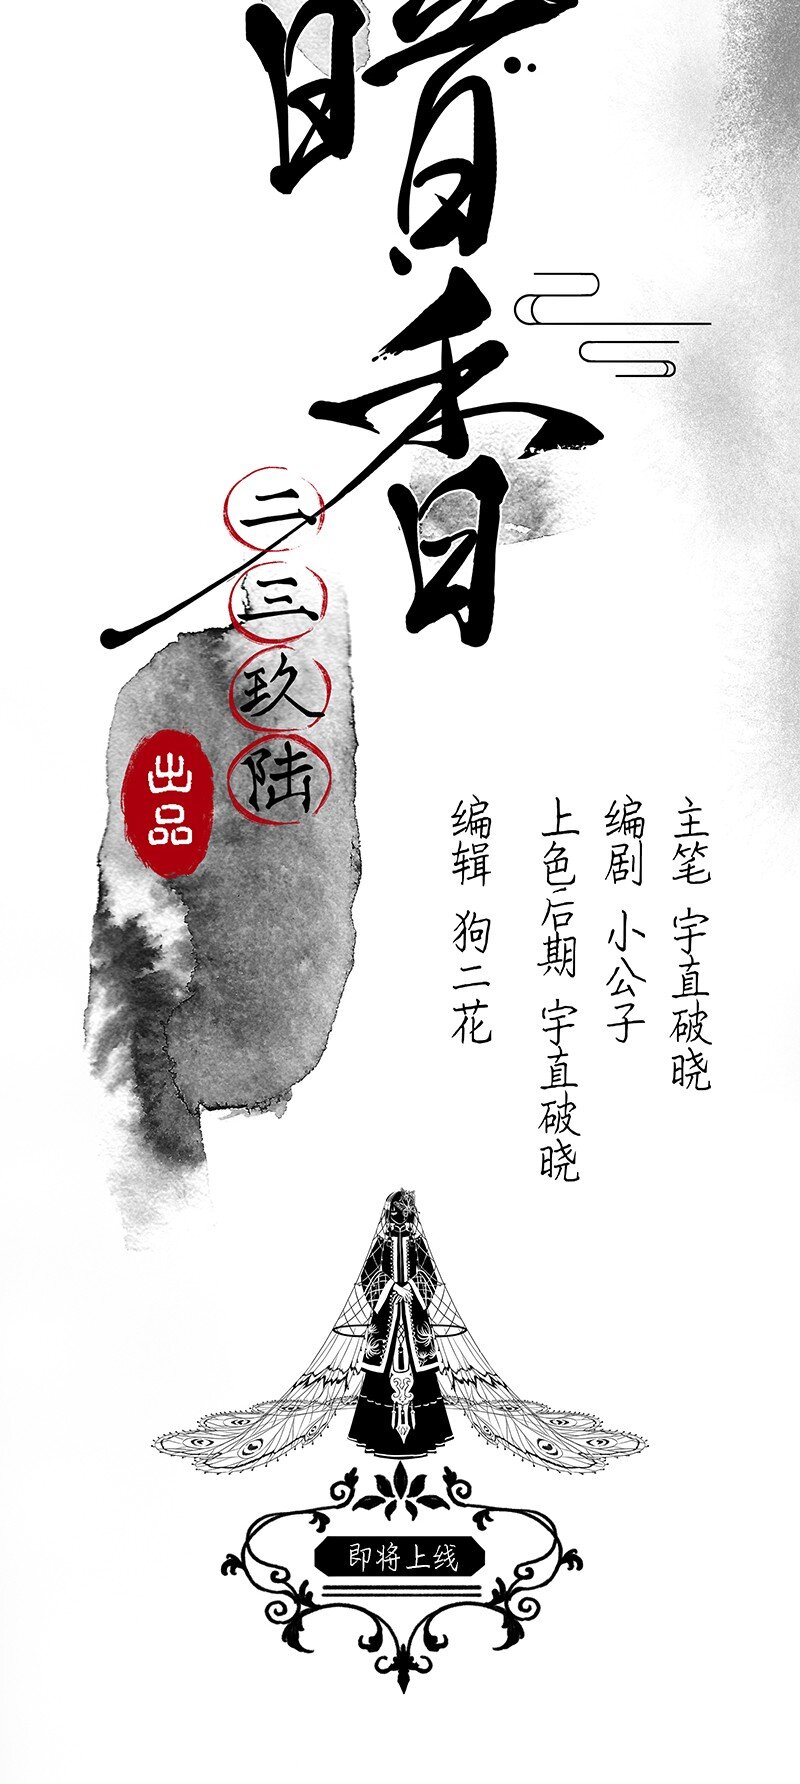 暗香
二三玖陆
出品
主笔 宇直破晓
编剧 小公子
上色后期 宇直破晓
编辑 狗二花
即将上线